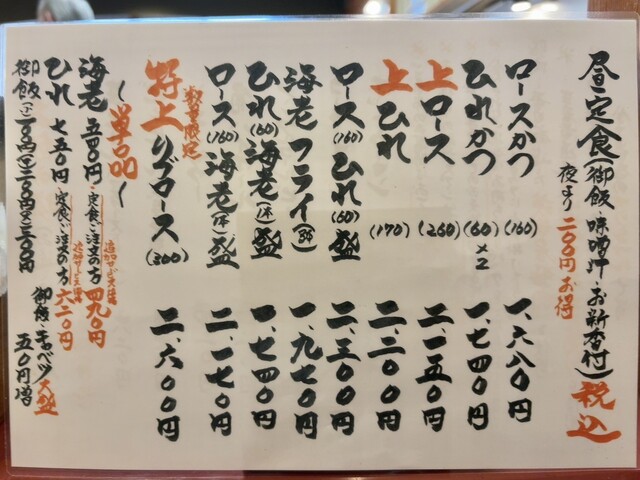 昼定食(御飯・味噌汁・お新香付)税込
夜より二〇〇円お得
ロースかつ (160) 一、六八〇円
ひれかつ (60)×2 一、七四〇円
上ロース (260) 二、一五〇円
上ひれ (170) 二、二〇〇円
ロース(160)ひれ(60)盛 二、三〇〇円
海老フライ(3本) 一、九七〇円
ひれ(60)海老(1本)盛 一、七四〇円
ロース(160)海老(1本)盛 二、一七〇円
数量限定
特上リブロース (300) 二、六〇〇円
〜単品〜
海老 五四〇円・定食ご注文の方 四九〇円
追加サービス価格
ひれ 七五〇円・定食ご注文の方 六二〇円
追加サービス価格
御飯(小)一〇〇円(中)二〇〇円(大)三〇〇円
御飯・キャベツ大盛 五〇円増